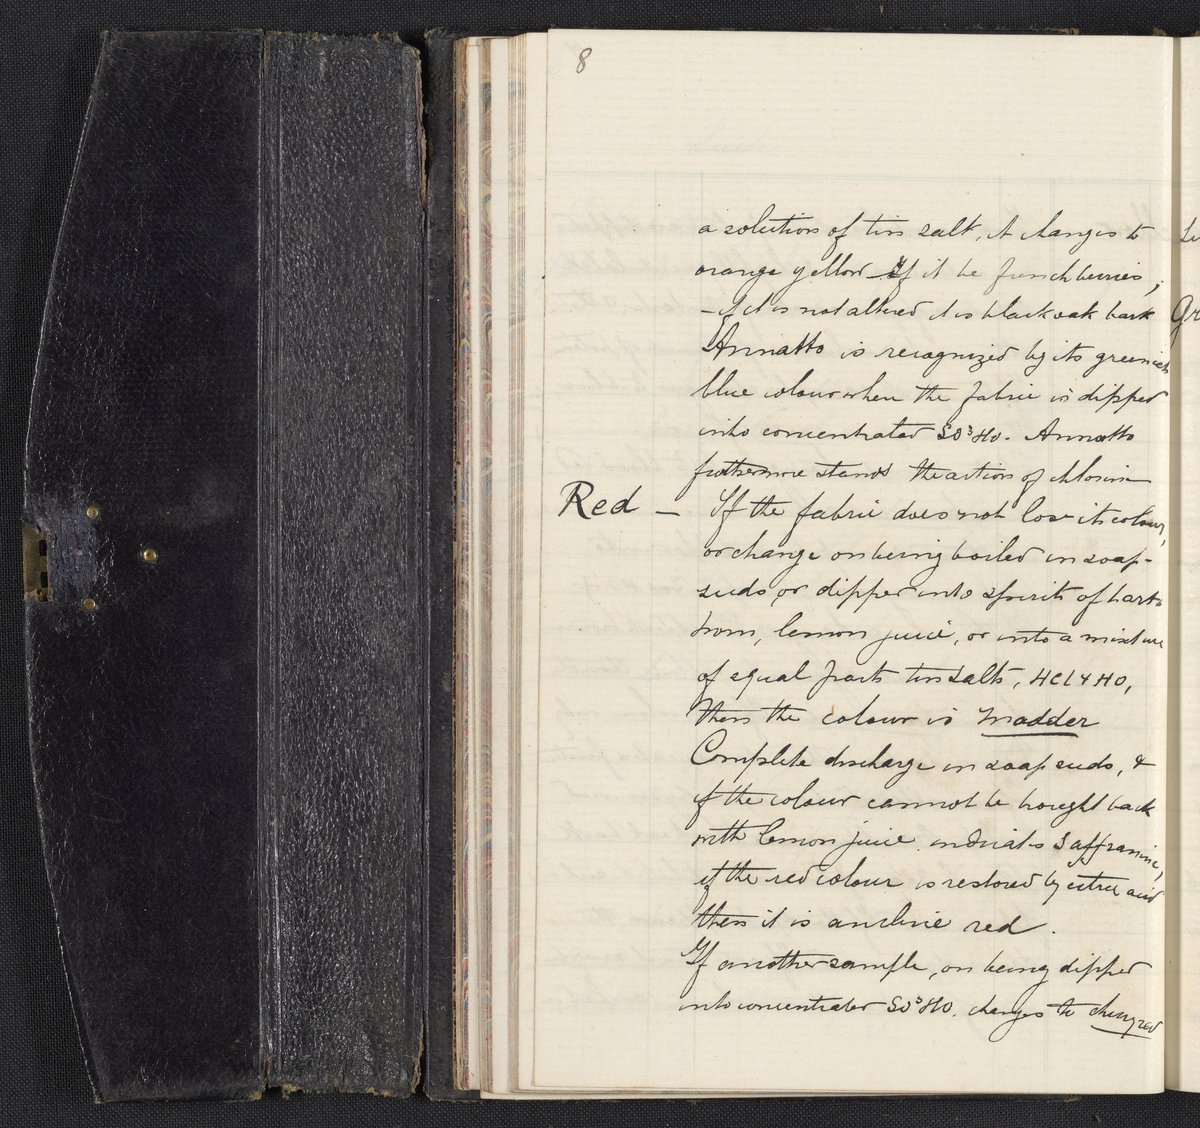 8
a solution of tin salt, it changes to
orange yellow If it be french berries,
- if it is not altered it is black oak bark
Annatto is recognized by its greenish
blue colour when the fabric is dipped
into concentrated SO³HO. Annatto
furthermore stands the action of chlorine
Red - If the fabric does not lose its colour,
or change on being boiled in soap-
suds, or dipped into spirit of harts
horn, lemon juice, or into a mixture
of equal parts tin salts, HCl & HO,
then the colour is madder
Complete discharge in soap suds, &
if the colour cannot be bought back
with lemon juice indicates Saffranine,
if the red colour is restored by citric acid
then it is aniline red.
If another sample, on being dipped
into concentrated SO³HO. changes to cherry red
Gr